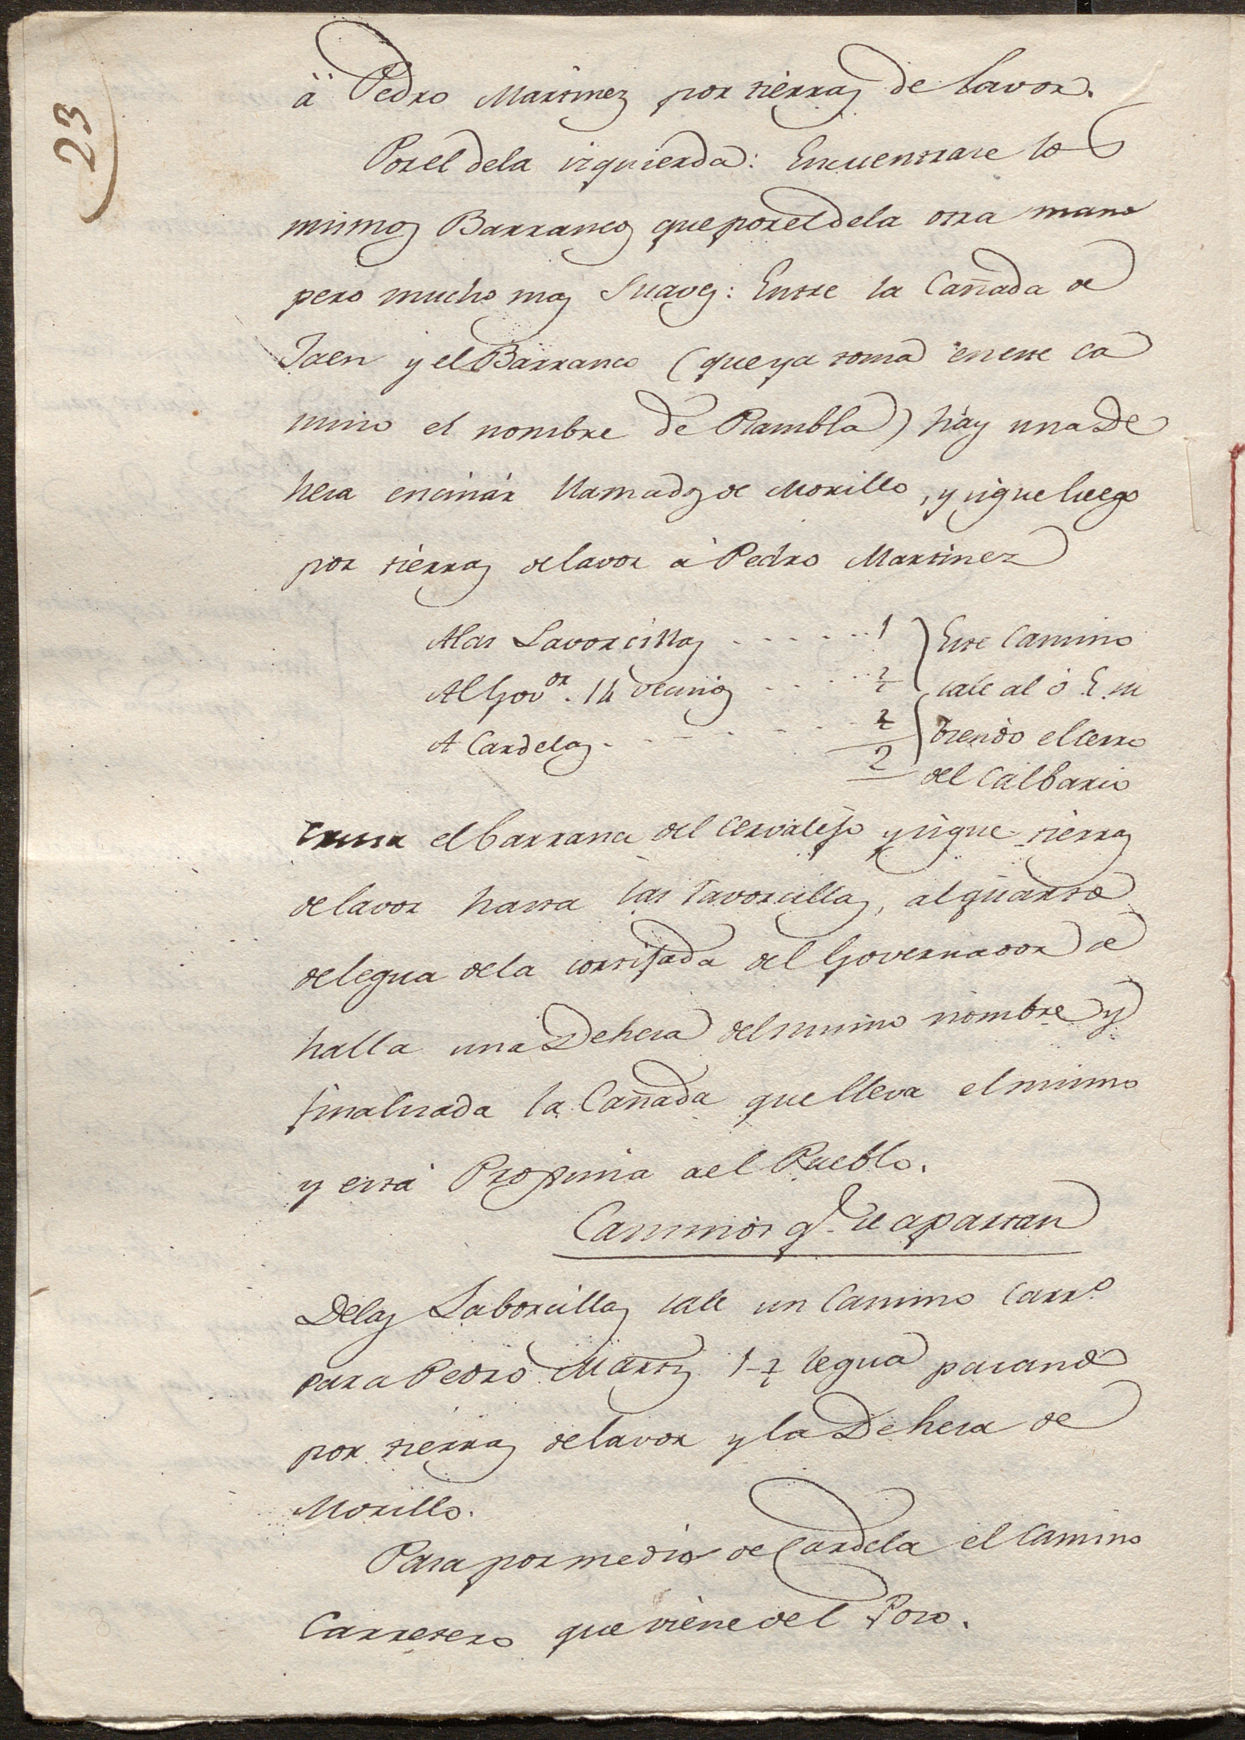 23
à Pedro Martinez por tierras de lavor.
Por el dela izquierda: Encuentrase los
mismos Barrancos que por el dela otra mano
pero mucho mas Suaves: Entre la Cañada de
Jaen y el Barranco (que ya toma en este ca
mino el nombre de Rambla) hay una De
hesa encinár llamada de Morillo, y sigue luego
por tierras de lavor à Pedro Martinez
A las Lavorcillas . . . . . . 1 Este Camino
Al Gov.or 14 vecinos . . . . ½ sale al ó E su
A Cardelas . . . . . . . ½ el cerro
2 del Calbario
Cruza el barranco del Cervalejo y sigue tierras
de lavor hasta las Lavorcillas, al quarto
de legua de la cortijada del Governador se
halla una Dehesa del mismo nombre y
finalizada la Cañada que lleva el mismo
y está Proxima a el Pueblo.
Caminos q.e se apartan
Delas Laborcillas sale un Camino Carr.o
para Pedro Martz 1 ½ legua pasando
por tierras de lavor y la Dehesa de
Morillo.
Pasa por medio de Cardela el Camino
Carretero que viene del Pozo.